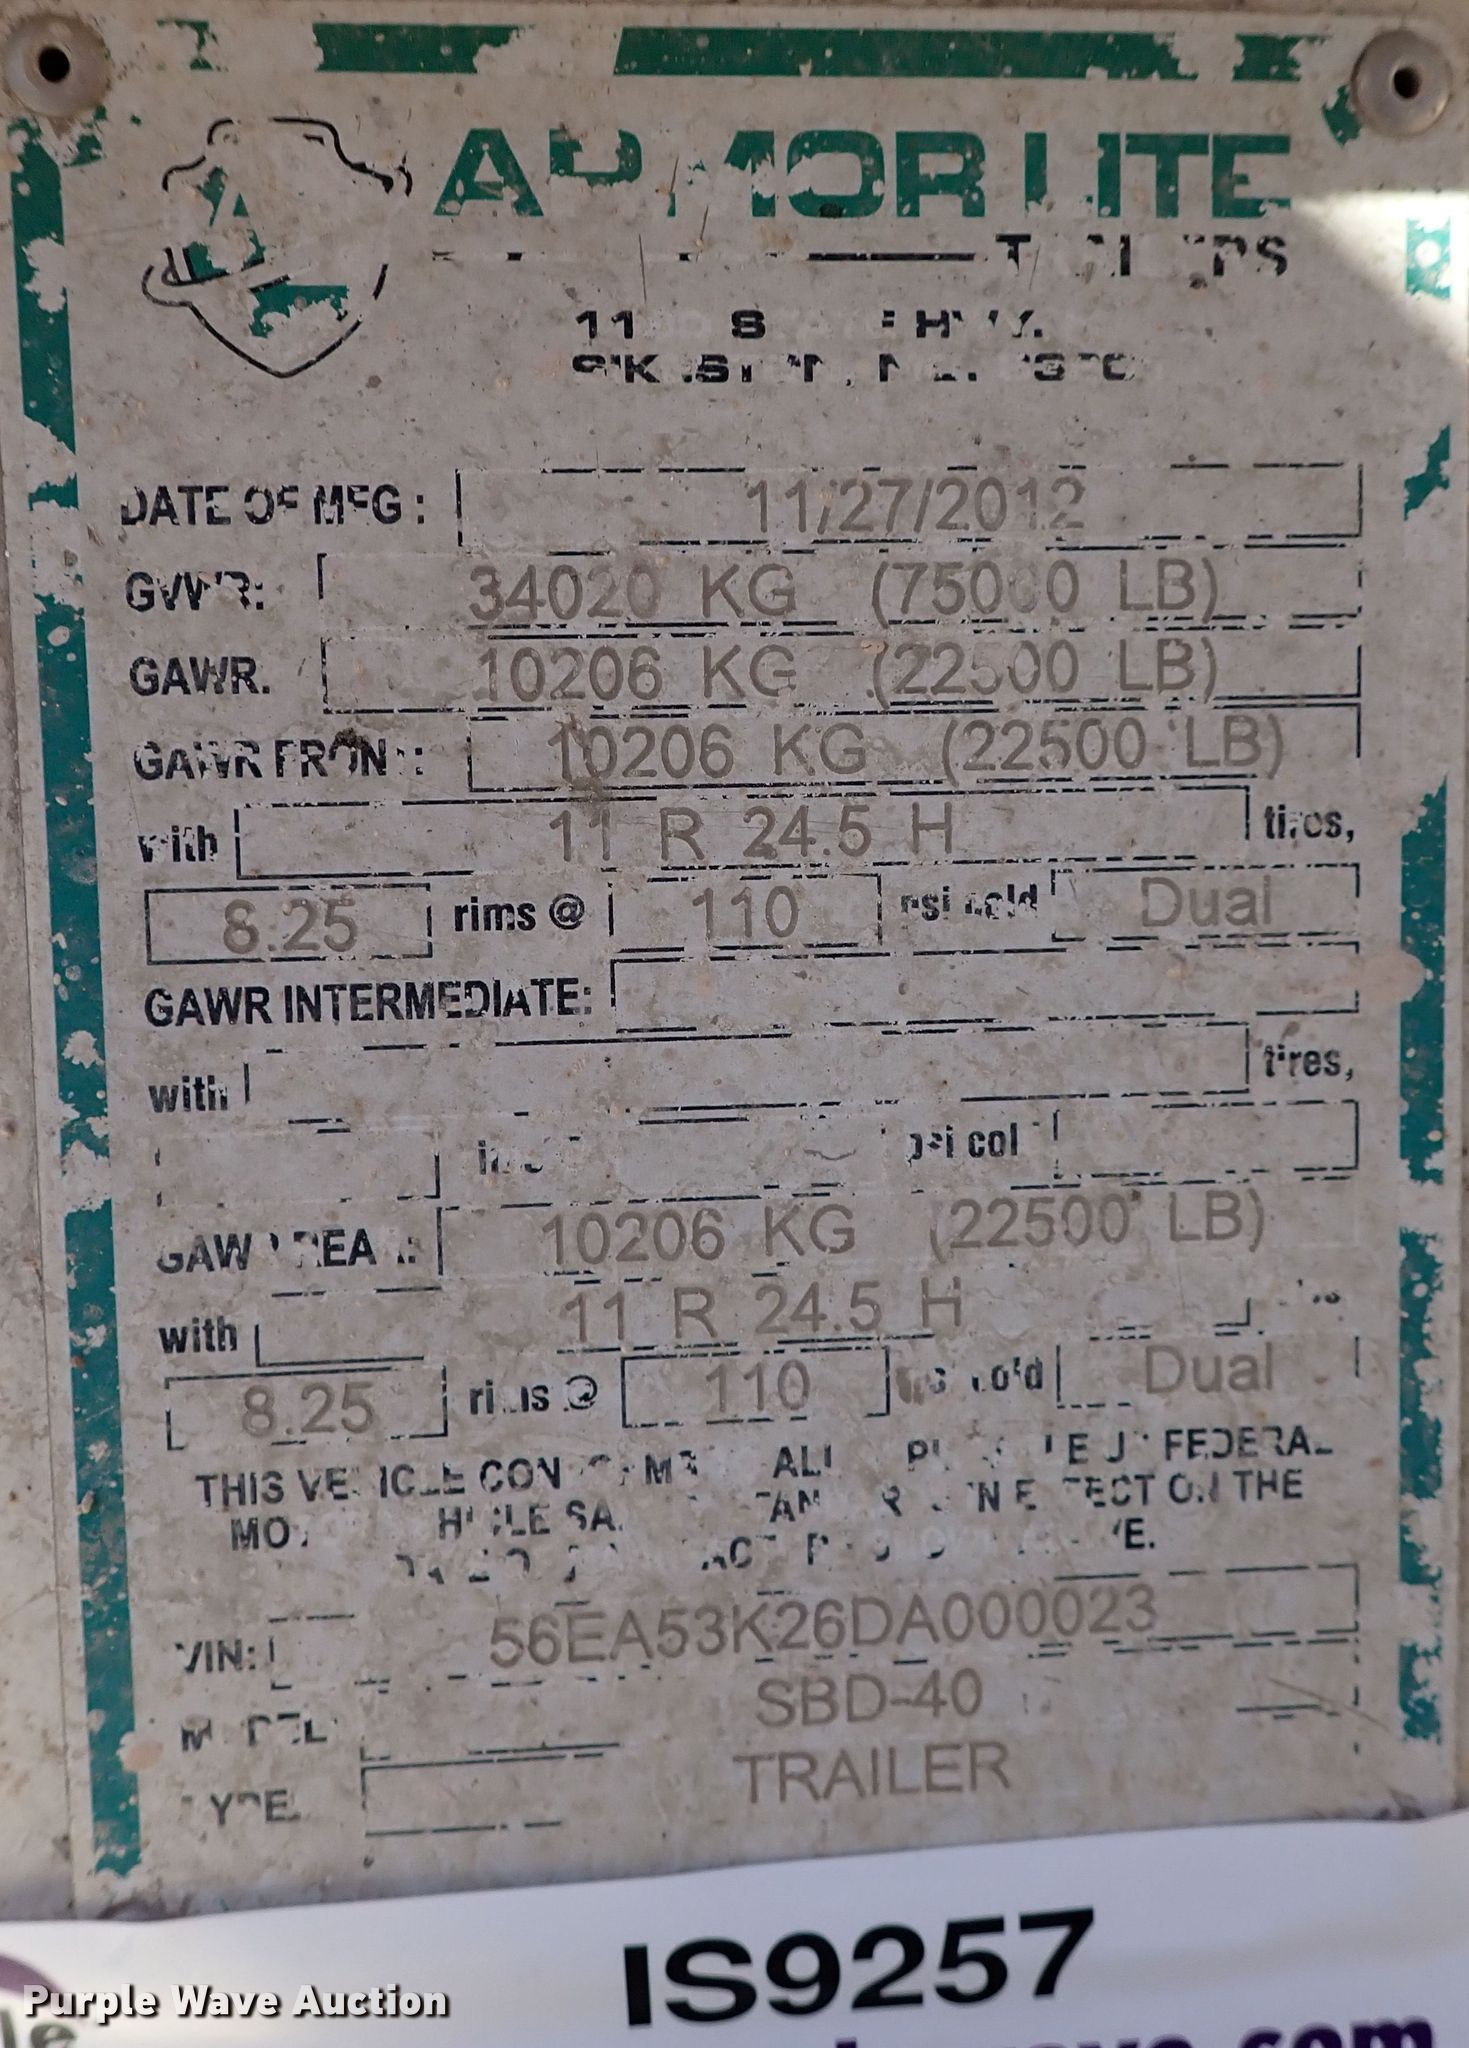 ARMOR LITE
TRAILERS
DATE OF MFG: 11/27/2012
GVWR: 34020 KG (75000 LB)
GAWR: 10206 KG (22500 LB)
GAWR FRONT: 10206 KG (22500 LB)
with 11 R 24.5 H tires,
8.25 rims @ 110 psi cold Dual
GAWR INTERMEDIATE:
with tires,
rims psi cold
GAWR REAR: 10206 KG (22500 LB)
with 11 R 24.5 H
8.25 rims @ 110 psi cold Dual
THIS VEHICLE CONFORMS ALL FEDERAL
MOTOR VEHICLE SAFETY STANDARDS IN EFFECT ON THE
MANUFACTURE ABOVE.
VIN: 56EA53K26DA000023
MODEL: SBD-40
TYPE: TRAILER
IS9257
Purple Wave Auction